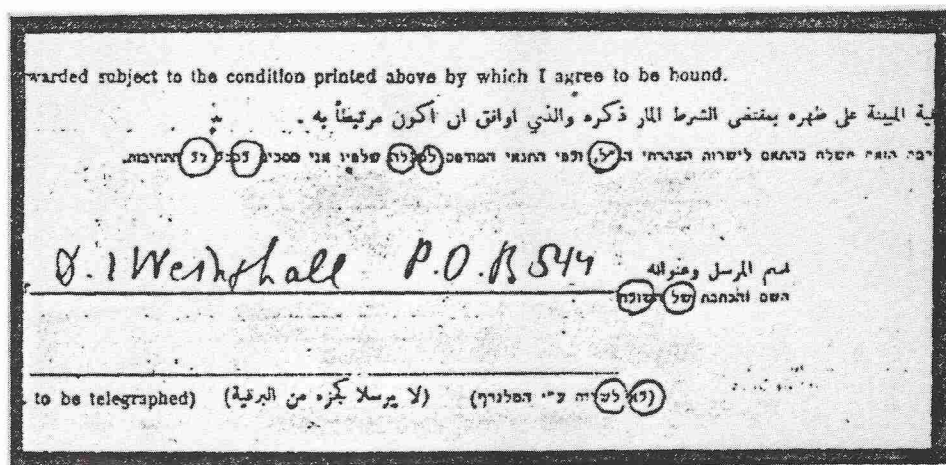 warded subject to the condition printed above by which I agree to be bound.
المبينة على ظهره بمقتضى الشرط المار ذكره والذي اوافق ان اكون مرتبطاً به .
הזאת תשלח בהתאם לישרות הצהרתי הנ״ל, ולפי התנאי המודפס למעלה שלפיו אני מסכים לקבל על התחיבות.
P.O.B 544
اسم المرسل وعنوانه
השם והכתבת של השולח
to be telegraphed) (لا يرسل كجزء من البرقية) (לא לשלוח ע״י הטלגרף)